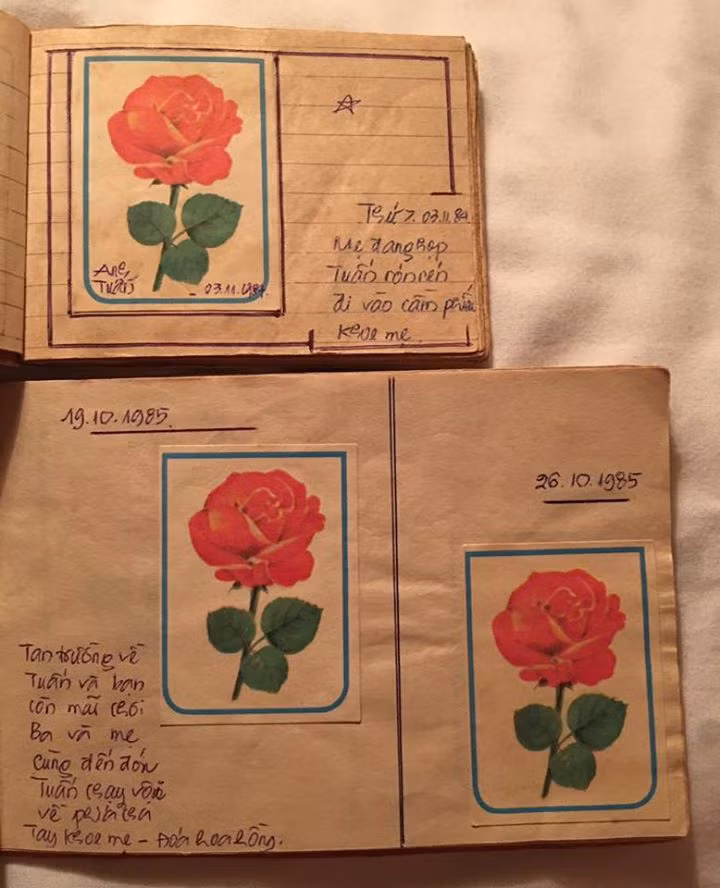 Anh
Tuấn
- 03.11.1984
Thứ 7. 03.11.84
Mẹ đang họp
Tuấn rón rén
đi vào cầm phiếu
khoe mẹ.
19.10.1985
Tan trường về
Tuấn và bạn
còn mãi chơi
Ba và mẹ
cùng đến đón
Tuấn chạy vội
về phía
Tay khoe mẹ - Đoá hoa hồng.
26.10.1985